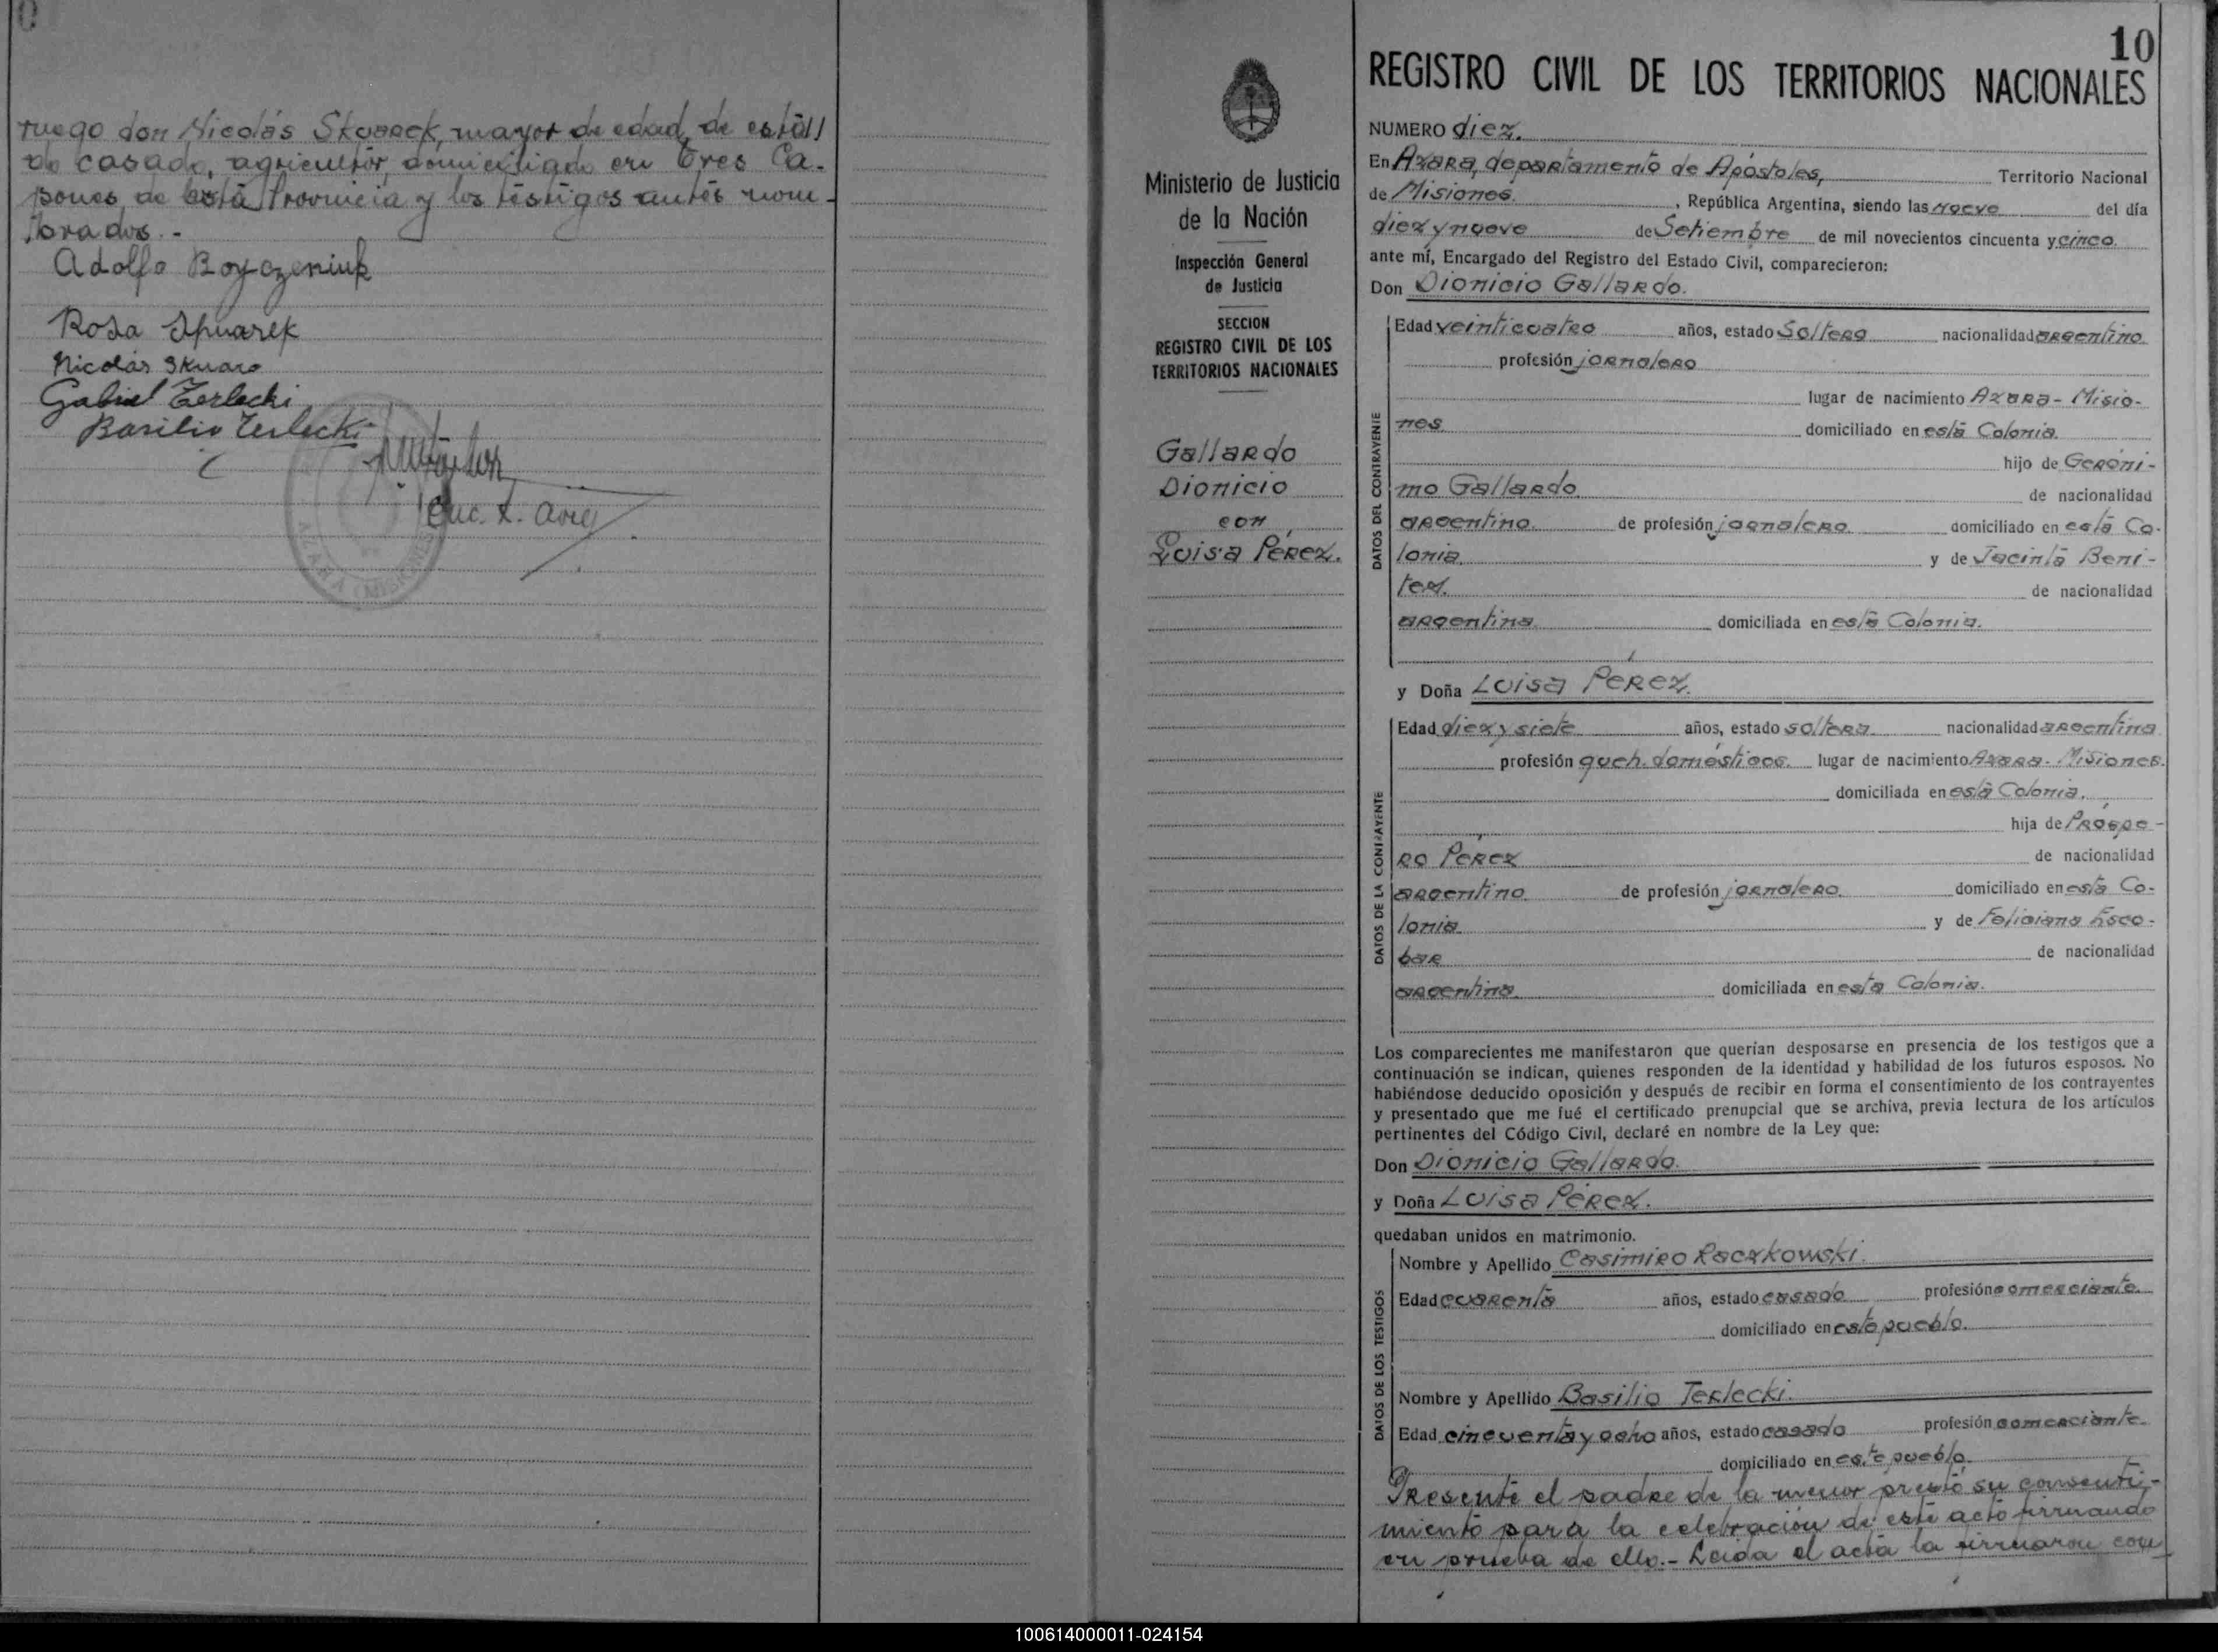 ruego don Nicolás Skvarek, mayor de edad, de está//
do casado, agricultor, domiciliado en Tres Ca-
pones de está Provincia y los testigos antes nom-
brados.-
Adolfo Boyczeniuk
Rosa Skuarek
Nicolás Skuare
Gabriel Terlecki
Basilio Terlecki
AZARA (MISIONES)
10
REGISTRO CIVIL DE LOS TERRITORIOS NACIONALES
Ministerio de Justicia
de la Nación
Inspección General
de Justicia
SECCION
REGISTRO CIVIL DE LOS
TERRITORIOS NACIONALES
Gallardo
Dionicio
con
Luisa Pérez.
NUMERO diez.
En Azara, departamento de Apóstoles, Territorio Nacional
de Misiones. , República Argentina, siendo las nueve del día
diez y nueve de Setiembre de mil novecientos cincuenta y cinco.
ante mí, Encargado del Registro del Estado Civil, comparecieron:
Don Dionicio Gallardo.
DATOS DEL CONTRAYENTE
Edad veinticuatro años, estado soltero nacionalidad argentino
profesión jornalero
lugar de nacimiento Azara- Misio-
nes. domiciliado en está Colonia.
hijo de Geróni-
mo Gallardo. de nacionalidad
argentino. de profesión jornalero domiciliado en está Co-
lonia. y de Jacinta Bení-
tez. de nacionalidad
argentina domiciliada en está Colonia.
y Doña Luisa Pérez.
DATOS DE LA CONTRAYENTE
Edad diez y siete años, estado soltera. nacionalidad argentina
profesión queh. domésticos. lugar de nacimiento Azara- Misiones.
domiciliada en está Colonia.
hija de Próspe-
ro Pérez de nacionalidad
argentino. de profesión jornalero. domiciliado en esta Co-
lonia. y de Feliciana Esco-
bar de nacionalidad
argentina. domiciliada en esta Colonia.
Los comparecientes me manifestaron que querían desposarse en presencia de los testigos que a
continuación se indican, quienes responden de la identidad y habilidad de los futuros esposos. No
habiéndose deducido oposición y después de recibir en forma el consentimiento de los contrayentes
y presentado que me fué el certificado prenupcial que se archiva, previa lectura de los artículos
pertinentes del Código Civil, declaré en nombre de la Ley que:
Don Dionicio Gallardo.
y Doña Luisa Pérez.
quedaban unidos en matrimonio.
DATOS DE LOS TESTIGOS
Nombre y Apellido Casimiro Raczkowski.
Edad cuarenta años, estado casado profesión comerciante.
domiciliado en este pueblo.
Nombre y Apellido Basilio Terlecki.
Edad cincuenta y ocho años, estado casado profesión comerciante.
domiciliado en este pueblo.
Presente el padre de la menor prestó su consenti-
miento para la celebración de este acto firmando
en prueba de ello.- Leída el acta la firmaron con
100614000011-024154